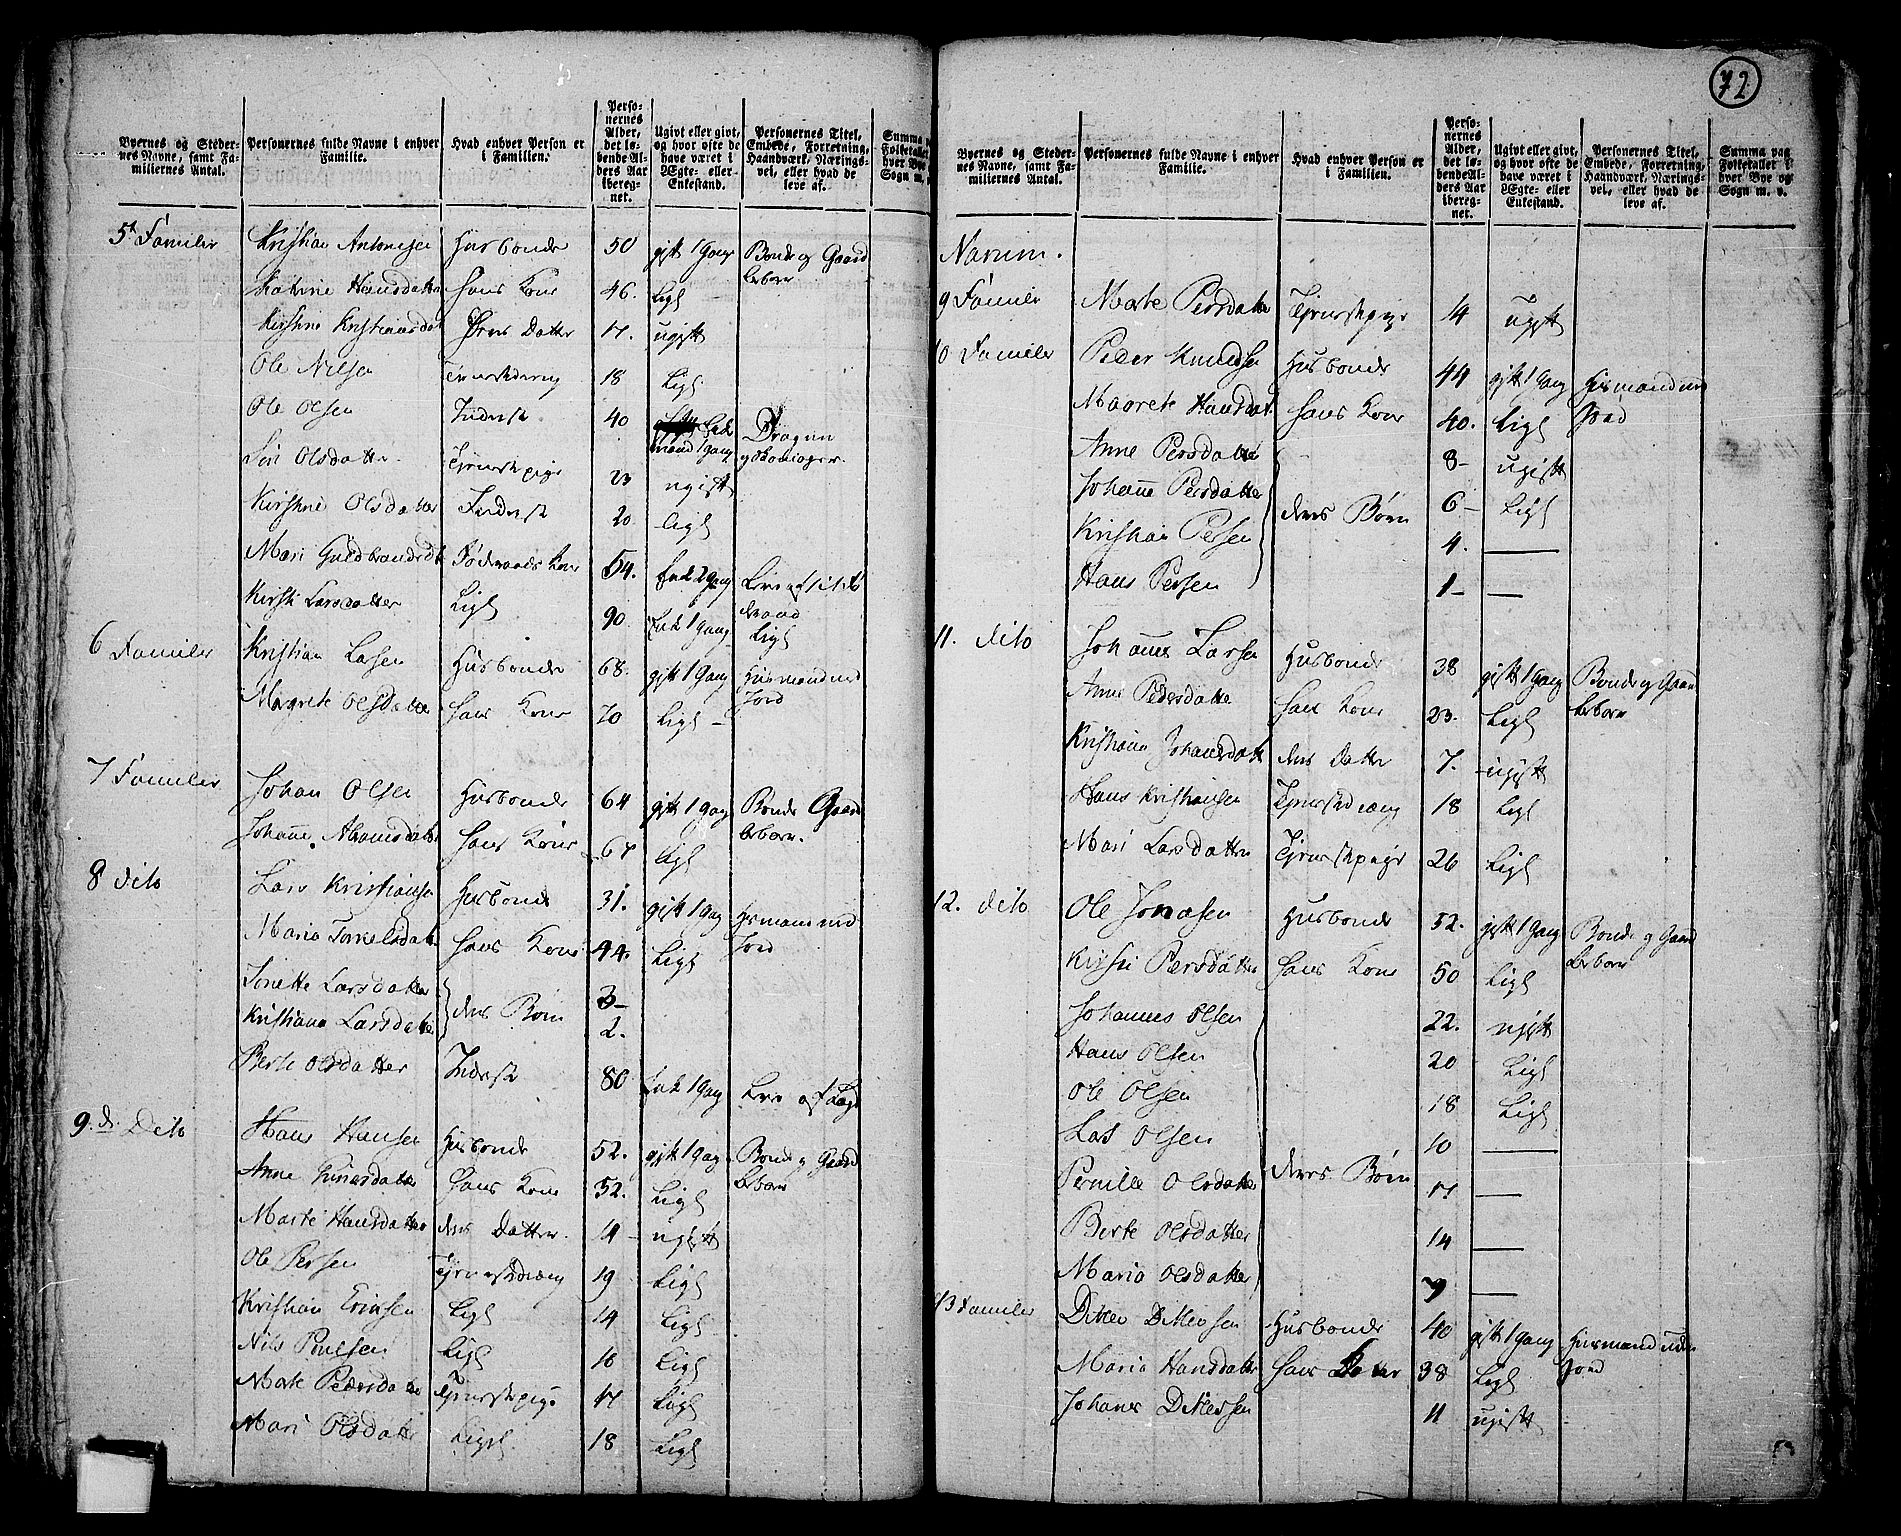 72
Byernes og Stedernes Navne, samt Familiernes Antal. Personernes fulde Navne i enhver Familie. Hvad enhver Person er i Familien. Personernes Alder, det løbende Alders Aar iberegnet. Ugivt eller givt, og hvor ofte de have været i Ægte- eller Enkestand. Personernes Titel, Embede, Forretning, Haandværk, Næringsvei, eller hvad de leve af. Summa paa Folketallet i hver Bye og Sogn
5t Familier Kristian Antonisen Husbonde 50 gift 1 Gang Bonde og Gaard beboer
Katrine Hansdatter Hans Kone 46. Ligl
Kirstine Kristiansdat Deres Datter 17. ugift
Ole Nilsen Tienistedreng 18 Ligl
Ole Olsen Inderst 40 Enkemand 1 Gang Dragun
Siri Olsdatter Tienistepige 23 ugift
Kirstine Olsdatter Inderst 20 Ligl
Mari Guldbrandsdt Føderaads Kone 54. Enk 2 Gang Leve af sit Føderaad
Kirsti Larsdatter Ligl 90. Enk 1 Gang Ligl
6 Familier Kristian Larsen Husbonde 68. gift 1 Gang Husmand med Jord
Margrete Olsdatter Hans Kone 70 Ligl
7 Familier Johan Olsen Husbonde 64 gift 1 Gang Bonde Gaard beboer.
Johanne Abramsdatter Hans Kone 67 Ligl
8 dito Lars Kristiansen Husbonde 31. gift 1 Gang Husmand med Jord
Maria Torkelsdat Hans Kone 44. Ligl
Sinette Larsdatter 3
Kristiana Larsdatter deres Børn 2.
Berte Olsdatter Inderst 80 Enk 1 Gang Leve af Lægd
9.d. Dito Hans Hansen Husbonde 52. gift 1 Gang Bonde og Gaard beboer
Anne Gunersdatter Hans Kone 52. Ligl
Marte Hansdatter deres Datter 14 ugift
Ole Persen Tienistedreng 19 Ligl
Kristian Eriksen Ligl 14 Ligl
Nils Poulsen Ligl 16 Ligl
Marte Pedersdatter Tienistepige 17 Ligl
Mari Olsdatter Ligl 18 Ligl
Byernes og Stedernes Navne, samt Familiernes Antal. Personernes fulde Navne i enhver Familie. Hvad enhver Person er i Familien. Personernes Alder, det løbende Alders Aar iberegnet. Ugivt eller givt, og hvor ofte de have været i Ægte- eller Enkestand. Personernes Titel, Embede, Forretning, Haandværk, Næringsvei, eller hvad de leve af. Summa paa Folketallet i hver Bye og Sogn m. v.
Narum.
9 Familier Marte Persdatter Tienistepige 14 ugift
10 Familier Peder Knudsen Husbonde 44 gift 1 Gang Husmand med Jord
Magrete Hansdat Hans Kone 40. Ligl
Anne Persdatter 8 ugift
Johanne Persdatter 6 Ligl
Kristian Persen deres Børn 4.
Hans Persen 1
11. dito Johannes Larsen Husbonde 38 gift 1 Gang Bonde og Gaard beboer
Anne Pedersdatter Hans Kone 23. Ligl
Kristiana Johansdatt deres Datter 7. ugift
Hans Kristiansen Tienistedreng 18 Ligl
Mari Larsdatter Tienistepige 26 Ligl
12. dito Ole Jonasen Husbonde 52. gift 1 Gang Bonde og Gaard beboer
Kirsti Persdatter Hans Kone 50 Ligl
Johannes Olsen 22. ugift
Hans Olsen 20 Ligl
Ole Olsen 18 Ligl
Lars Olsen 10
Pernille Olsdatter deres Børn 17
Berte Olsdatter 14
Maria Olsdatter 7
13 Familier Ditlev Ditlevsen Husbonde 40 gift 1 Gang Husmand uden Jord
Maria Hansdatter Hans Kone 38 Ligl
Johanes Ditlefsen 11 ugift